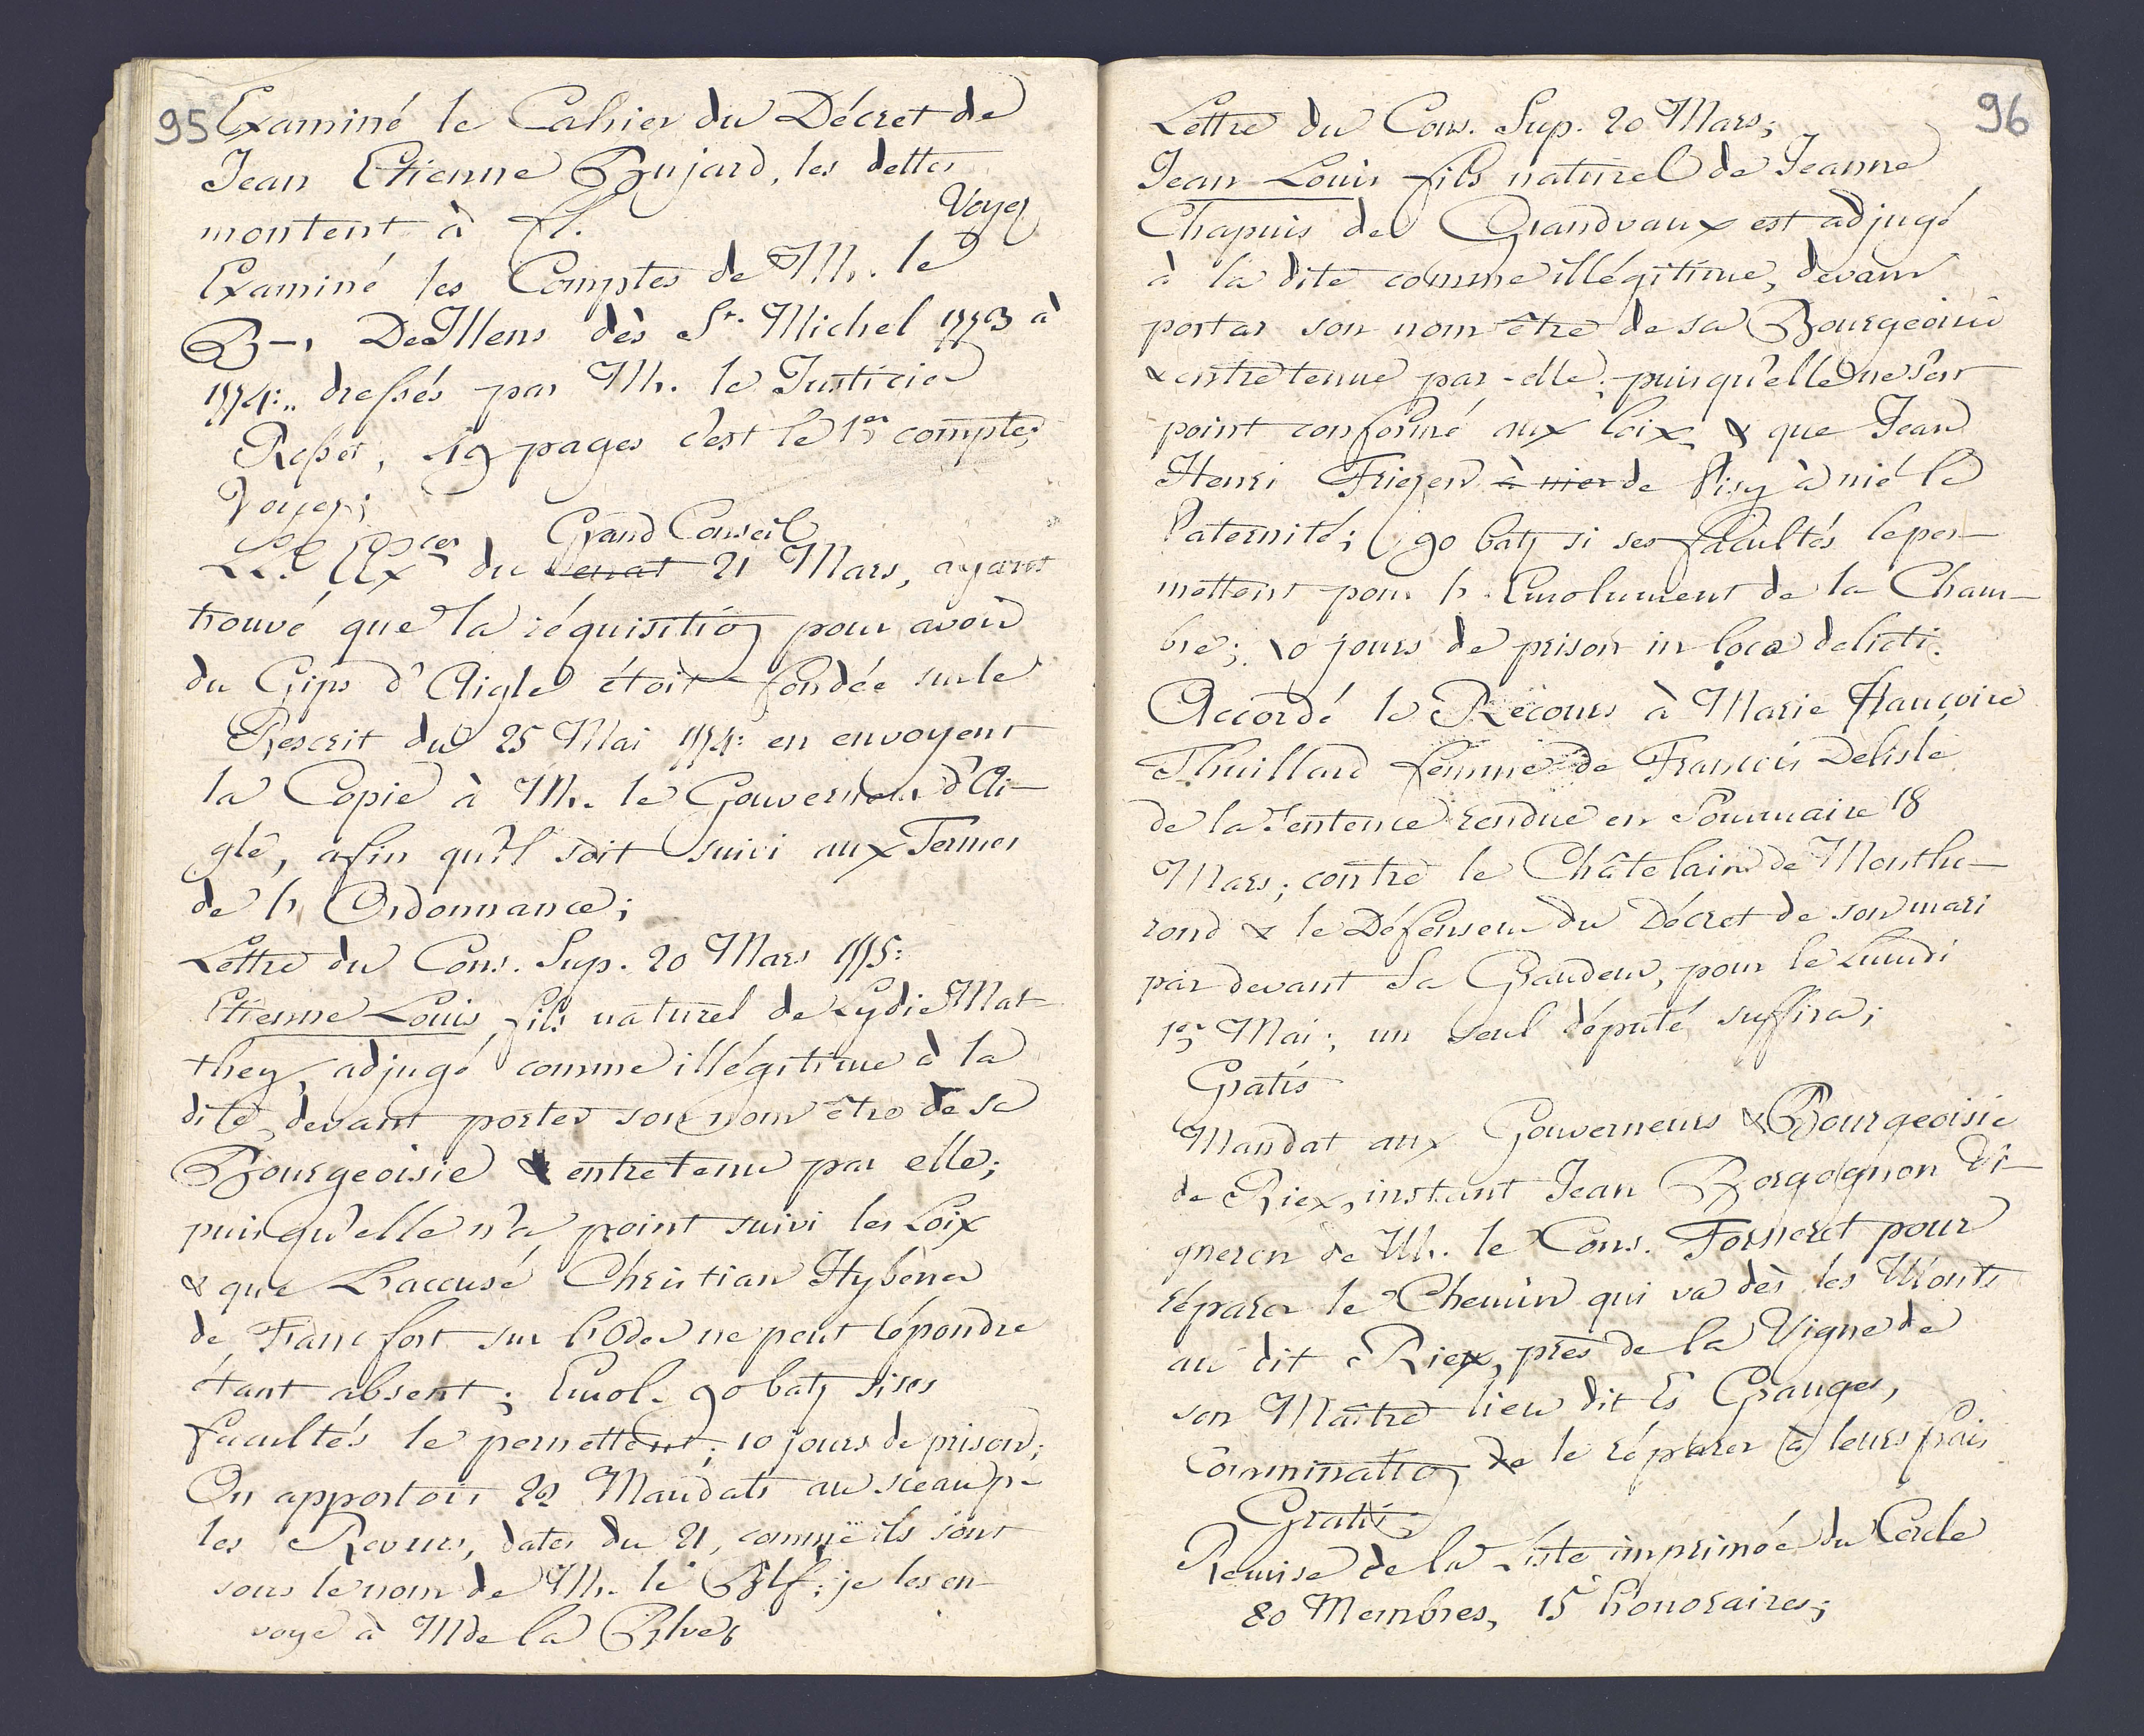 95
Examiné le Cahier du Décret de
Jean Etienne Bujard, les dettes
montent à fl. Voyez
Examiné les Comptes de Mr. le
B-, DeIllens dès St. Michel 1773 à
1774: dressés par Mr. le Justicier
Resset, 19 pages c'est le 1er compte;
Voyez;
LL. EExces du Grand Conseil
21 Mars, ayant
trouvé que la réquisition pour avoir
du Gips d'Aigle étoit fondée sur le
Rescrit du 25 Mai 1774: en envoyent
la Copie à Mr. le Gouverneur d'Ai-
gle, afin qu'il soit suivi aux Termes
de l'Ordonnance;
Lettre du Cons. Sup. 20 Mars 1775:
Etienne Louis fils naturel de Lydie Mat-
they, adjugé comme illégitime à la
dite, devant porter son nom être de sa
Bourgeoisie & entretenu par elle;
puisqu'elle n'a point suivi les Loix
& que L'accusé Christian Hybener
de Francfort sur l'Oder ne peut répondre
étant absent; Emol. 90 batz si ses
facultés le permettent; 10 jours de prison;
On apportoit 22 Mandats au sceau pr
les Revues, datés du 21, comme ils sont
sous le nom de Mr. le Blf: je les en-
voye à Mde la Blve;
96
Lettre du Cons. Sup. 20 Mars;
Jean Louis fils naturel de Jeanne
Chapuis de Grandvaux est adjugé
à la dite comme illégitime, devant
porter son nom être de sa Bourgeoisie
& entretenue par elle; puisqu'elle ne s'est
point conformé aux loix, & que Jean
Henri à nier de Visy à nié la
Paternité; 90 batz si ses facultés le per-
mettent pour l'Emolument de la Cham-
bre; 10 jours de prison in loco delicti.
Accordé le Recours à Marie Françoise
Thuillard femme de François Delisle
de la Sentence rendue en Sommaire 18
Mars; contre le Châtelain de Monthe-
rond & le Défenseur du Décret de son mari
par devant Sa Grandeur, pour le Lundi
1er Mai; un seul député suffira;
Gratis
Mandat aux Gouverneurs & Bourgeoisie
de Riex, instant Jean Borgognon Vi-
gneron de Mr. le Cons. Forneret pour
réparer le Chemin qui va dès les Monts
au dit Riex, près de la Vigne de
son Maître lieu dit Es Granges,
Commination de le réparer à leurs frais
Gratis
Remise de la Liste imprimée du Cercle
80 Membres, 15 honoraires;